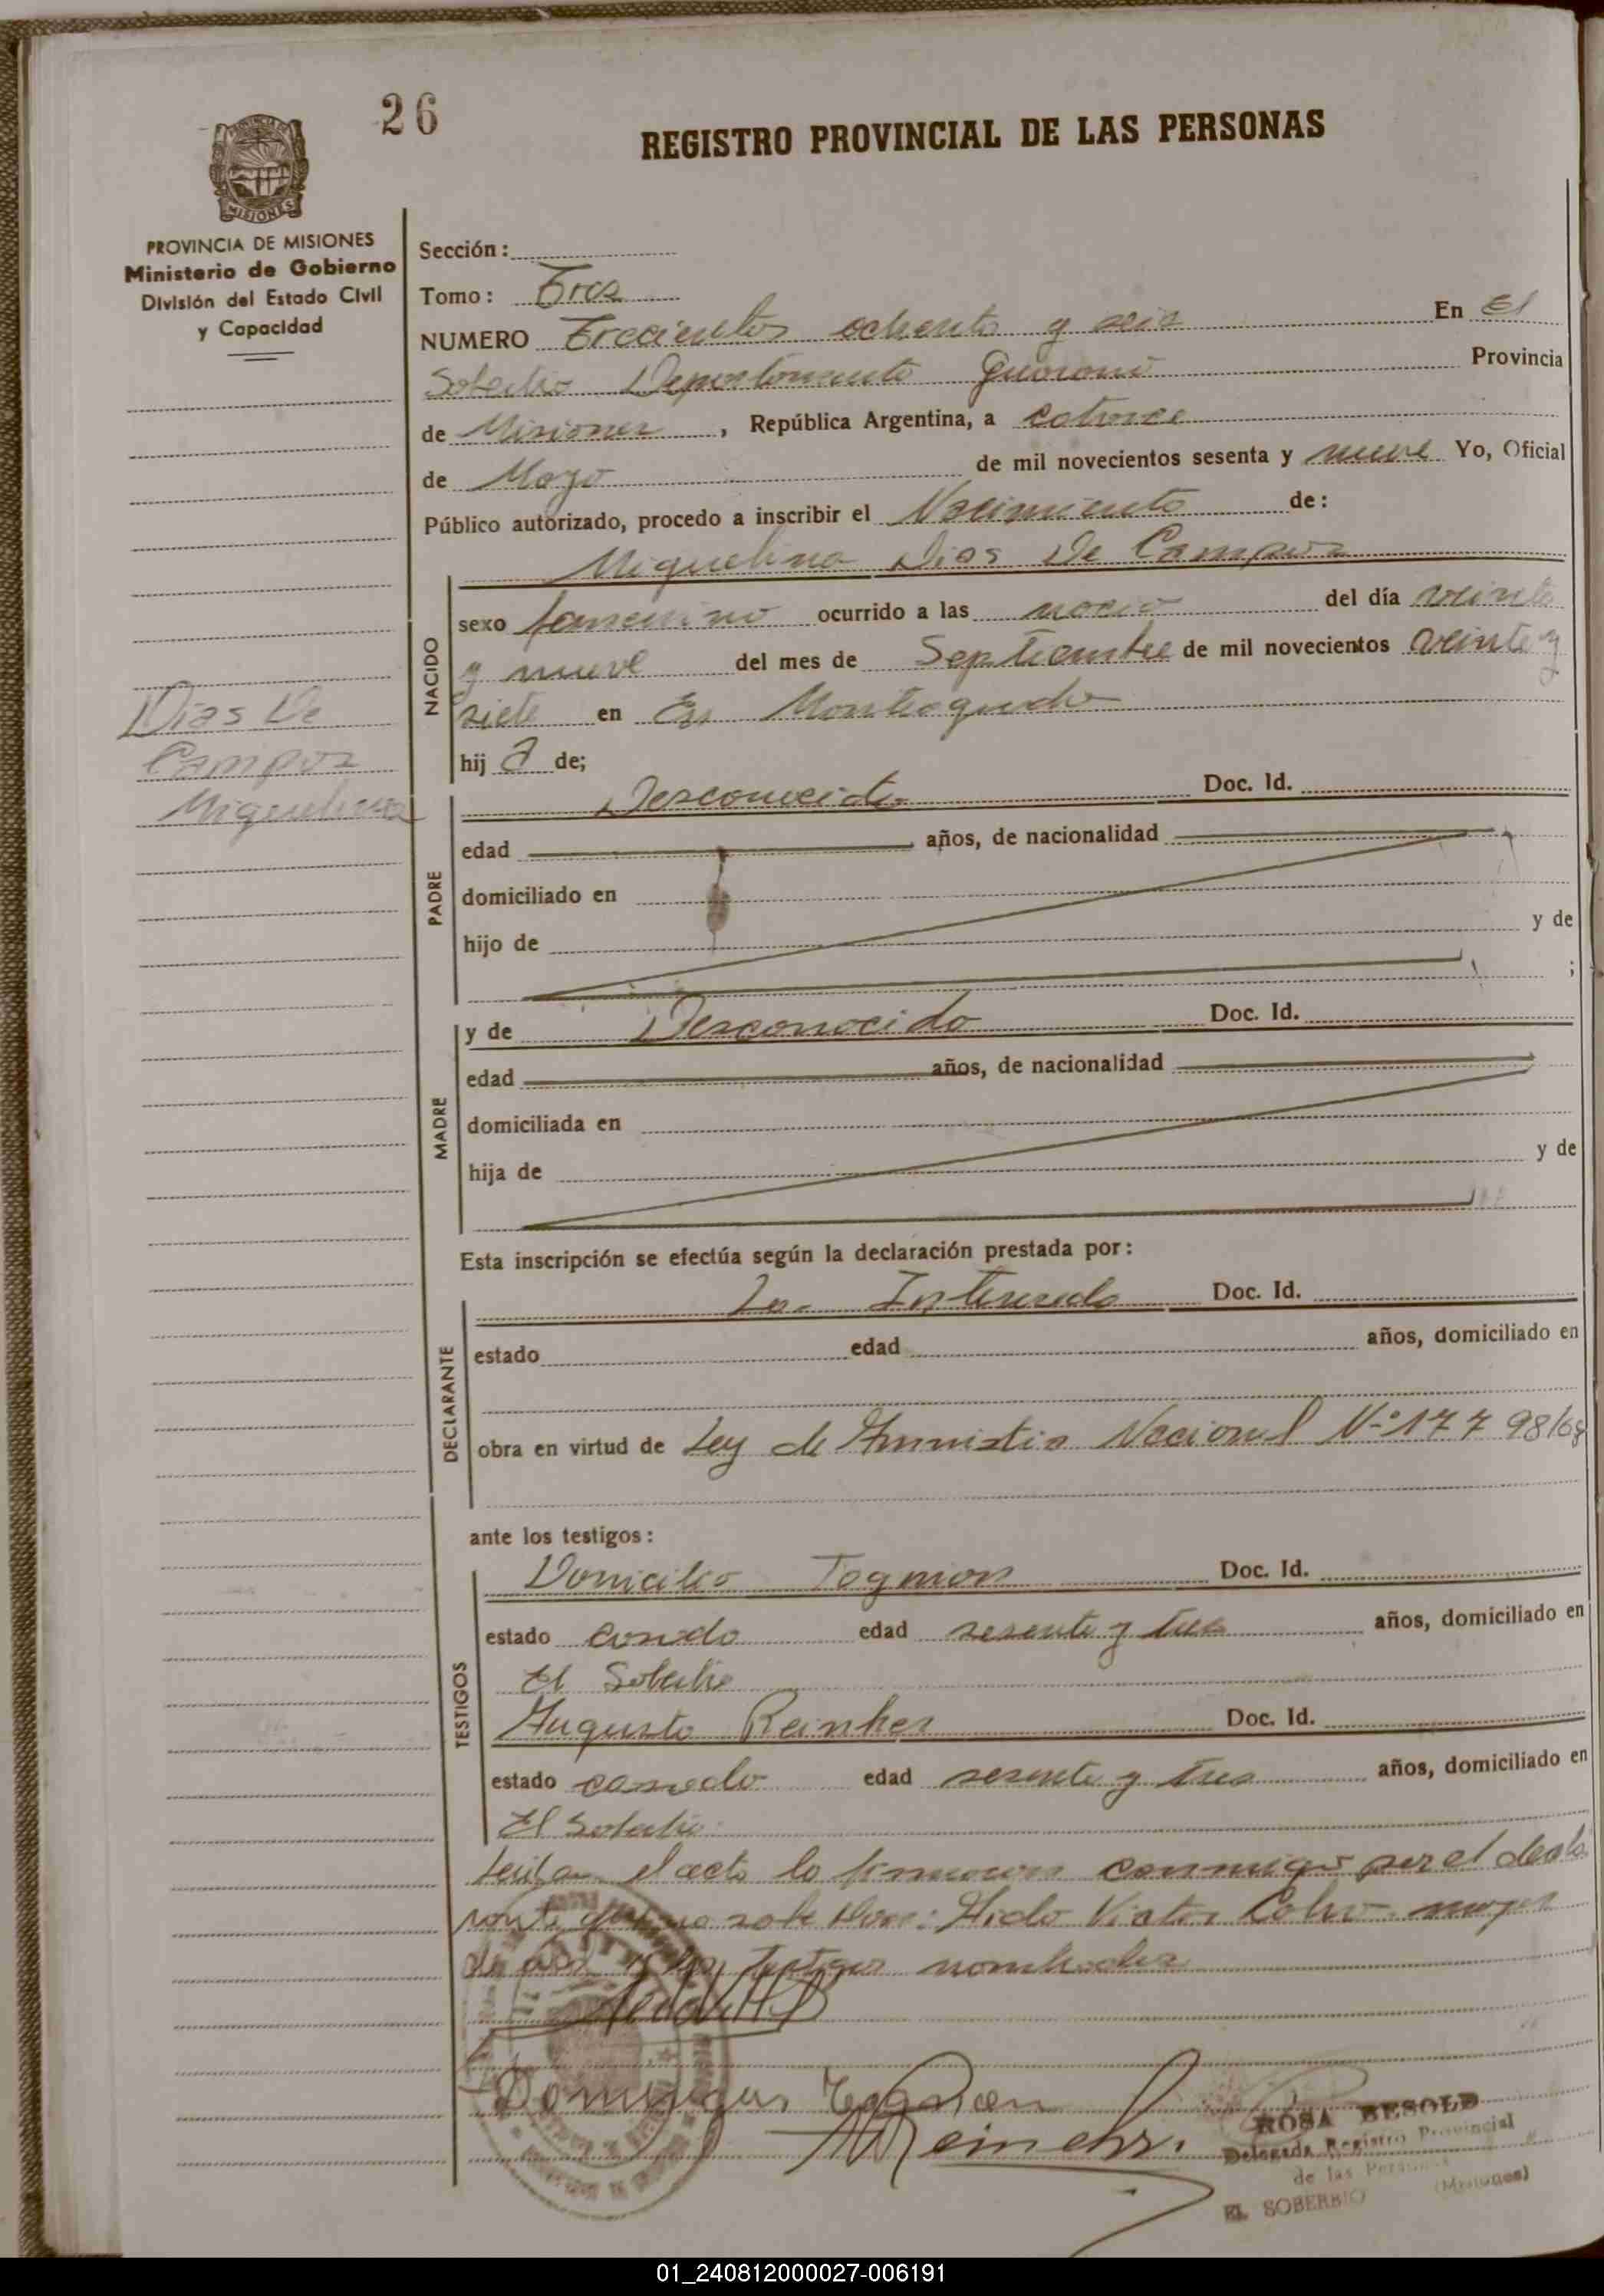 26
REGISTRO PROVINCIAL DE LAS PERSONAS
MISIONES
PROVINCIA DE MISIONES
Ministerio de Gobierno
División del Estado Civil
y Capacidad
Sección:
Tomo: Tres
NUMERO Trecientos ochenta y seis En El
Soberbio Departamento Guaraní Provincia
de Misiones, República Argentina, a catorce
de Mayo de mil novecientos sesenta y nueve Yo, Oficial
Público autorizado, procedo a inscribir el Nacimiento de:
Miguelina Dias De Campos
NACIDO
sexo femenino ocurrido a las del día veinte
y nueve del mes de Septiembre de mil novecientos veinte y
siete en En Monteagudo
hij a de;
Dias De
Campos
Miguelina
PADRE
Desconocido Doc. Id.
edad años, de nacionalidad
domiciliado en
hijo de y de
;
MADRE
y de Desconocido Doc. Id.
edad años, de nacionalidad
domiciliada en
hija de y de
Esta inscripción se efectúa según la declaración prestada por:
DECLARANTE
La Interesada Doc. Id.
estado edad años, domiciliado en
obra en virtud de Ley de Amnistia Nacional Nº 177 98/68
ante los testigos:
TESTIGOS
Domicilio Tagmon Doc. Id.
estado casado edad sesenta y tres años, domiciliado en
El Soberbio
Augusto Reinher Doc. Id.
estado casado edad sesenta y tres años, domiciliado en
El Soberbio
el acto lo conmigo por el
Victor mayor
de testigos nombrados
Reinehr.
ROSA BESOLD
Delegada Registro Provincial
de las Personas
EL SOBERBIO (Misiones)
01_240812000027-006191